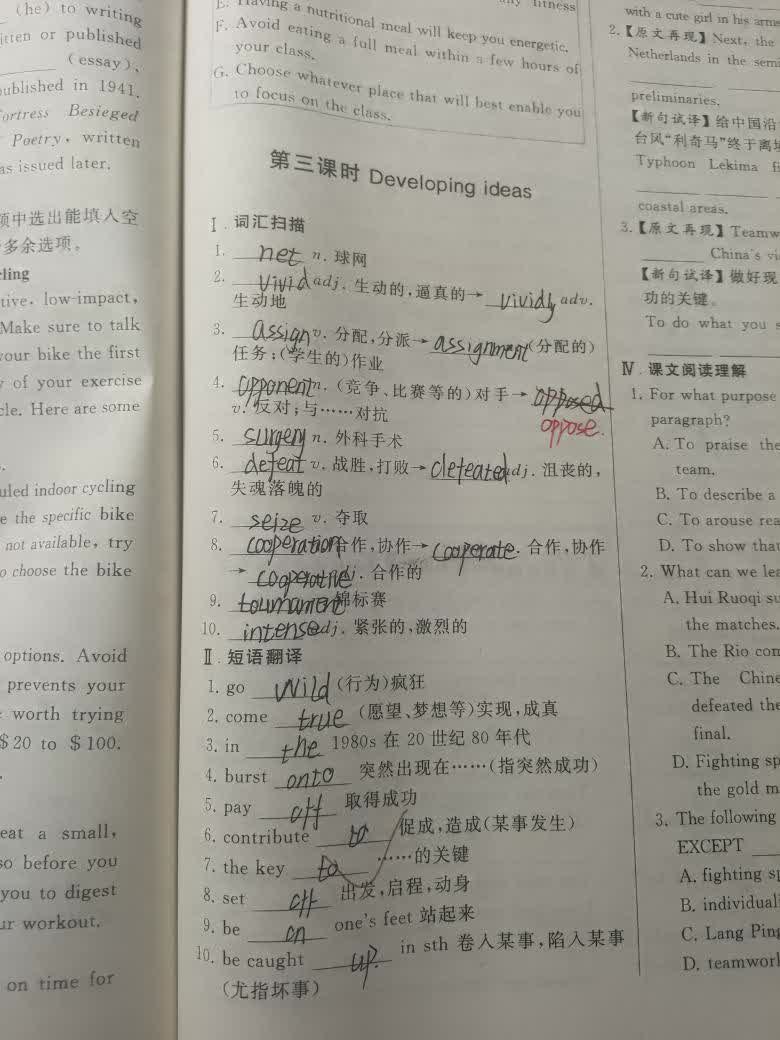 (he) to writing
itten or published
(essay)、
ublished in 1941.
Fortress Besieged
Poetry, written
as issued later.
项中选出能填入空
多余选项。
ling
tive, low-impact,
Make sure to talk
your bike the first
y of your exercise
cle. Here are some
uled indoor cycling
e the specific bike
not available, try
o choose the bike
options. Avoid
prevents your
worth trying
$20 to $100.
eat a small,
so before you
you to digest
ur workout.
on time for
any fitness
E. Having a nutritional meal will keep you energetic.
F. Avoid eating a full meal within a few hours of
your class.
G. Choose whatever place that will best enable you
to focus on the class.
第三课时 Developing ideas
Ⅰ. 词汇扫描
1. net n. 球网
2. vivid adj. 生动的,逼真的→ vividly adv.
生动地
3. assign v. 分配,分派→ assignment (分配的)
任务;(学生的)作业
4. opponent n. (竞争、比赛等的)对手→ opposed
oppose.
v. 反对;与……对抗
5. surgery n. 外科手术
6. defeat v. 战胜,打败→ defeated adj. 沮丧的,
失魂落魄的
7. seize v. 夺取
8. cooperation 合作,协作→ cooperate. 合作,协作
→ cooperative adj. 合作的
9. tournament 锦标赛
10. intense adj. 紧张的,激烈的
Ⅱ. 短语翻译
1. go wild (行为)疯狂
2. come true (愿望、梦想等)实现,成真
3. in the 1980s 在 20 世纪 80 年代
4. burst onto 突然出现在……(指突然成功)
5. pay off 取得成功
6. contribute to 促成,造成(某事发生)
7. the key to ……的关键
8. set off 出发,启程,动身
9. be on one's feet 站起来
10. be caught up. in sth 卷入某事,陷入某事
(尤指坏事)
with a cute girl in his arms
2.【原文再现】Next, the
Netherlands in the semi
preliminaries.
【新句试译】给中国沿
台风“利奇马”终于离
Typhoon Lekima fi
coastal areas.
3.【原文再现】Teamw
China's vi
【新句试译】做好现
功的关键。
To do what you s
Ⅳ. 课文阅读理解
1. For what purpose
paragraph?
A. To praise the
team.
B. To describe a
C. To arouse rea
D. To show that
2. What can we lea
A. Hui Ruoqi su
the matches.
B. The Rio com
C. The Chine
defeated the
final.
D. Fighting sp
the gold m
3. The following
EXCEPT
A. fighting sp
B. individual
C. Lang Ping
D. teamwork